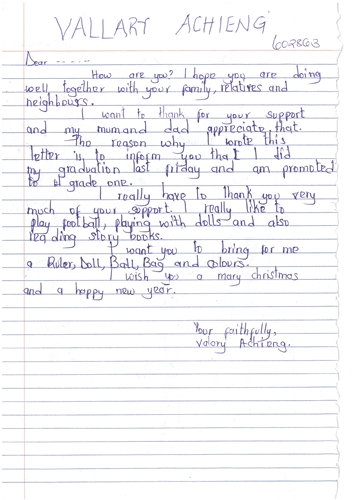 VALLARY ACHIENG
602863
Dear ......
How are you? I hope you are doing
well together with your family, relatives and
neighbours.
I want to thank for your support
and my mum and dad appreciate that.
The reason why I wrote this
letter is to inform you that I did
my graduation last friday and am promoted
to grade one.
I really have to thank you very
much of your support. I really like to
play football, playing with dolls and also
reading story books.
I want you to bring for me
a Ruler, Doll, Ball, Bag and colours.
I wish you a mary christmas
and a happy new year.
Your faithfully,
Valary Achieng.